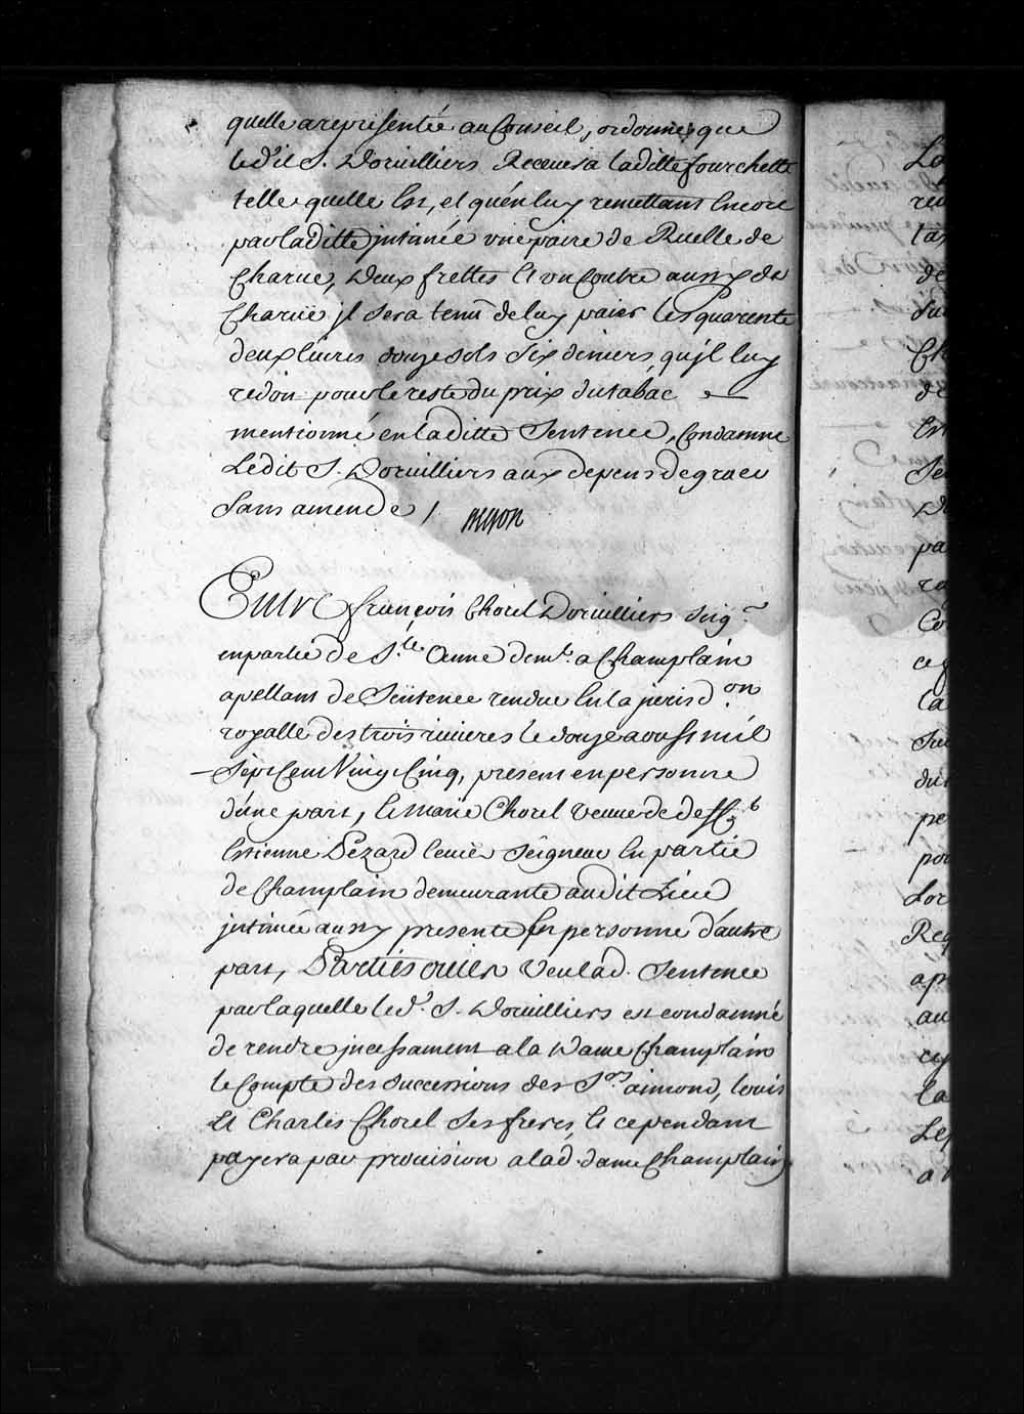 quelle a representée au Conseil, ordonne que
led.it S. Dorvilliers Recevera laditte fourchette
telle quelle Est, et qu'en luy remettant Encore
par laditte jntimée une paire de Ruelle de
Charue, deux frettes Et un Coutre aussy de
Charüe jl sera tenu de luy paier les quarente
deux livres douze sols six deniers, qu'jl luy
redoit pour le reste du prix du tabac
mentionné en laditte Sentence, Condamne
Ledit S. Dorvilliers aux depens de grace
Sans amende /
Entre françois Chorel Dorvilliers Seig.r
en partie de S.te Anne dem.t a Champlain
apellant de Sentence rendue En la jurisd.on
royalle des trois rivieres le douze aoust mil
Sept Cent Vingt Cinq, present en personne
d'une part, Et Marie Chorel veuve de deff.t
Estienne Pezard Ecuier Seigneur En partie
de Champlain demeurante audit Lieu
jntimée aussy presente En personne d'autre
part, Parties ouies Veu lad. Sentence
par laquelle led.t S. Dorvilliers est condamné
de rendre jncessament a la Dame Champlain
le Compte des successions des S.rs aimond, Louis
Et Charles Chorel Ses freres, Et cependant
payera par provision a lad. dame Champlain